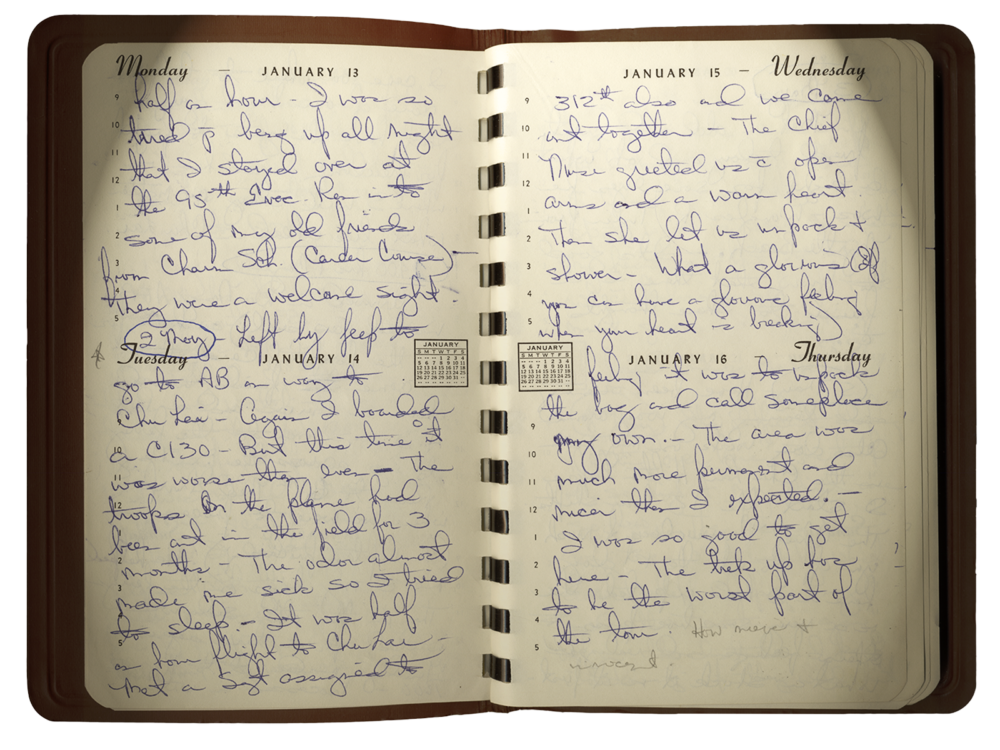 Monday — JANUARY 13
half an hour - I was so
tired p̄ being up all night
that I stayed over at
the 95th Evac. Ran into
some of my old friends
from Cham Sch. (Career Course) -
they were a welcome sight.
2 Nov Left by jeep to
Tuesday — JANUARY 14
go to AB on way to
Chu Lai - Again I boarded
a C130 - But this time it
was worse than ever - The
troops on the plane had
been out in the field for 3
months - The odor almost
made me sick so I tried
to sleep. - It was half
an hour flight to Chu Lai -
Met a Sgt assigned to
JANUARY
S M T W T F S
1 2 3 4
5 6 7 8 9 10 11
12 13 14 15 16 17 18
19 20 21 22 23 24 25
26 27 28 29 30 31
JANUARY 15 — Wednesday
312th also and we came
out together - The Chief
Nurse greeted us c̄ open
arms and a warm heart.
Then she let us unpack +
shower - What a glorious (If
you can have a glorious feeling
when your heart is breaking)
JANUARY 16 — Thursday
feeling it was to unpack
the bag and call someplace
my own. - The area was
much more permanent and
nicer than I expected. -
I was so good to get
here - The trek up has
to be the worst part of
the tour. How naive +
innocent.
JANUARY
S M T W T F S
1 2 3 4
5 6 7 8 9 10 11
12 13 14 15 16 17 18
19 20 21 22 23 24 25
26 27 28 29 30 31